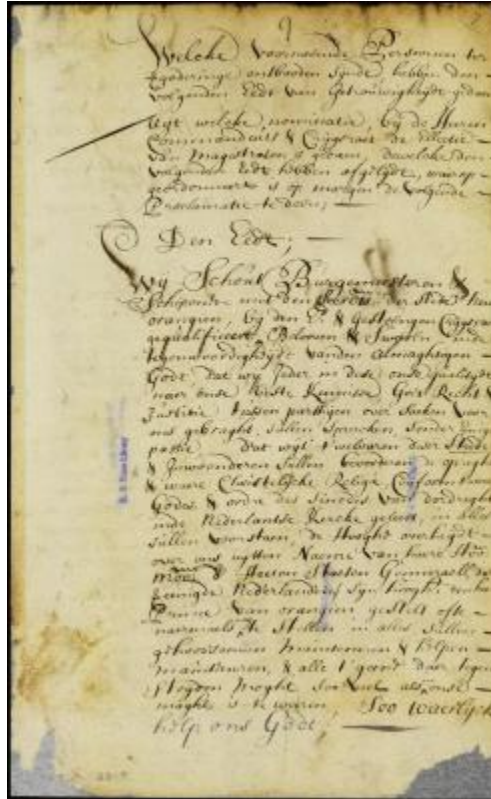 Welcke Voornoemde Persoonen ter
vergaderinge ontbooden synde hebben den
volgenden Eedt van Getrouwigheyt gedaen
Uyt welcke nominatie, by de Heeren
Commandeurs & Crygsraet de Electie
van Magistraten is gedaen, dewelcke den
volgenden Eedt hebben afgeleyt, waerop
geordonneert is op morgen de volgende
Proclamatie te doen;
Den Eedt;
Wij Schout Burgemeesteren &
Schepenen met den Secrets. der Stadt
orangien, by den E. &
gequalificeert, Belooven & Sweeren inde
tegenwoordigheyt vanden almachtigen
Godt, dat wy Ieder in dese onse qualiteyt
naer onse beste Kennisse Goet Recht &
Justitie tussen partyen over saken voor
ons gebraght, sullen spreecken, sonder
passie, dat wy t' welvaren deser Stede
& Inwoonderen sullen
& ware Christelycke Religie Conform
Godes & ordre des sinodis van dordreght
inde Nederlantse Kercke geleert, in alles
sullen voorstaen, de Hooghe overheydt
over ons uytten Naeme van haere Hoo:
Moo: de Heeren Staeten Generaell der
Nederlanden & syn hoogh:
Prince van orangien gestelt ofte
naermaels te stellen in alles sullen
gehoorsaemen & helpen
mainteneren, & alle 't geene daer tegen
Stryden moght soo veel als onse
maght is te weeren, Soo waerlyck
help ons Godt;